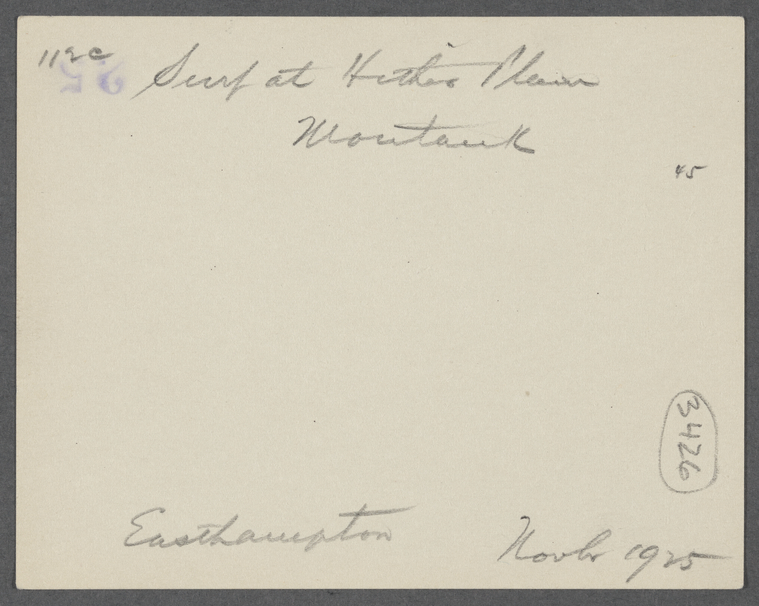 112C Surf at Hither Plain
Montauk
45
3426
Easthampton Novbr 1925